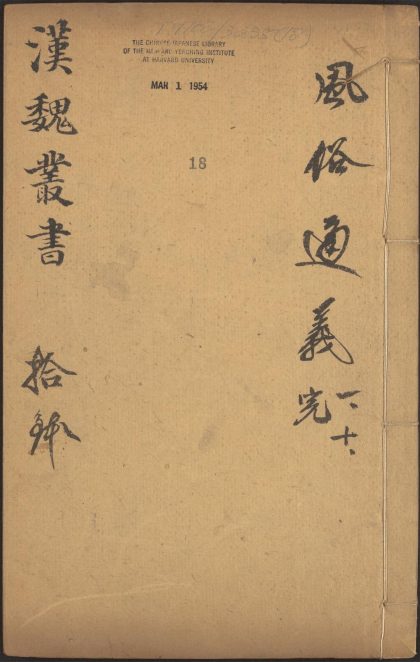 THE CHINESE-JAPANESE LIBRARY
OF THE HARVARD-YENCHING INSTITUTE
AT HARVARD UNIVERSITY
MAR 1 1954
18
風俗通義 一、十、完
漢魏叢書 拾